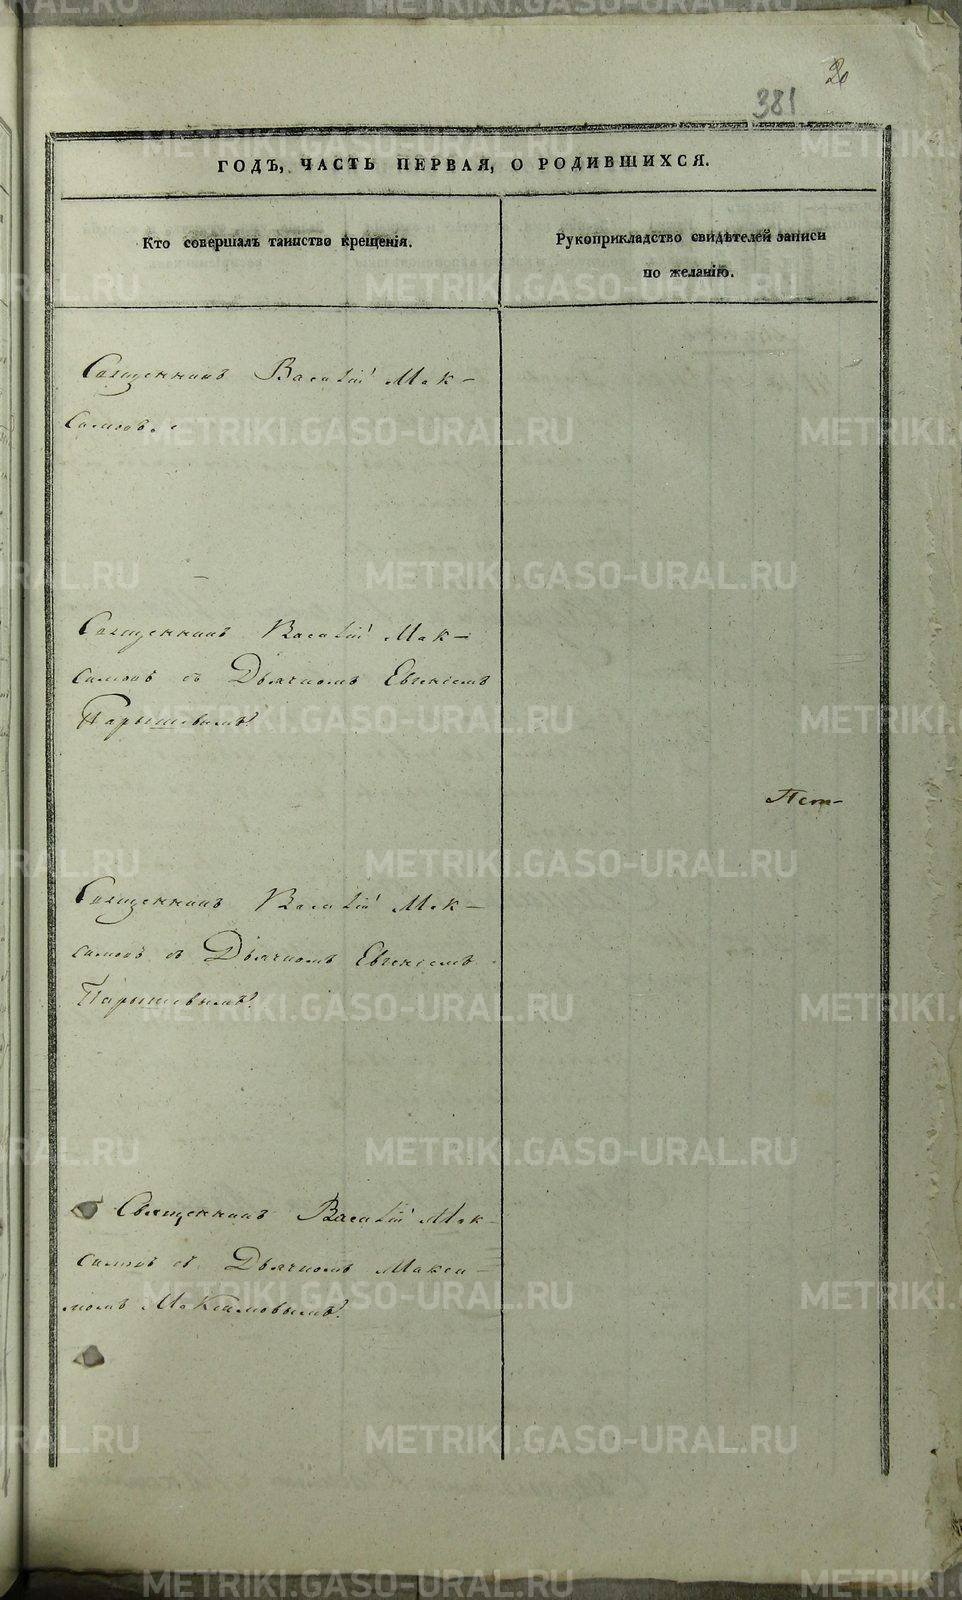 20
381
ГОДЪ, ЧАСТЬ ПЕРВАЯ, О РОДИВШИХСЯ.
Кто совершалъ таинство крещенія.
Рукоприкладство свидѣтелей записи
по желанію.
Священникъ Василій Мак-
симовъ.
Священникъ Василій Мак-
симовъ съ Дьячкомъ Евгеніемъ
Парышевымъ.
Священникъ Василій Мак-
симовъ съ Дьячкомъ Евгеніемъ
Парышевымъ.
Священникъ Василій Мак-
симовъ съ Дьячкомъ Макси-
момъ Максимовымъ.
METRIKI.GASO-URAL.RU